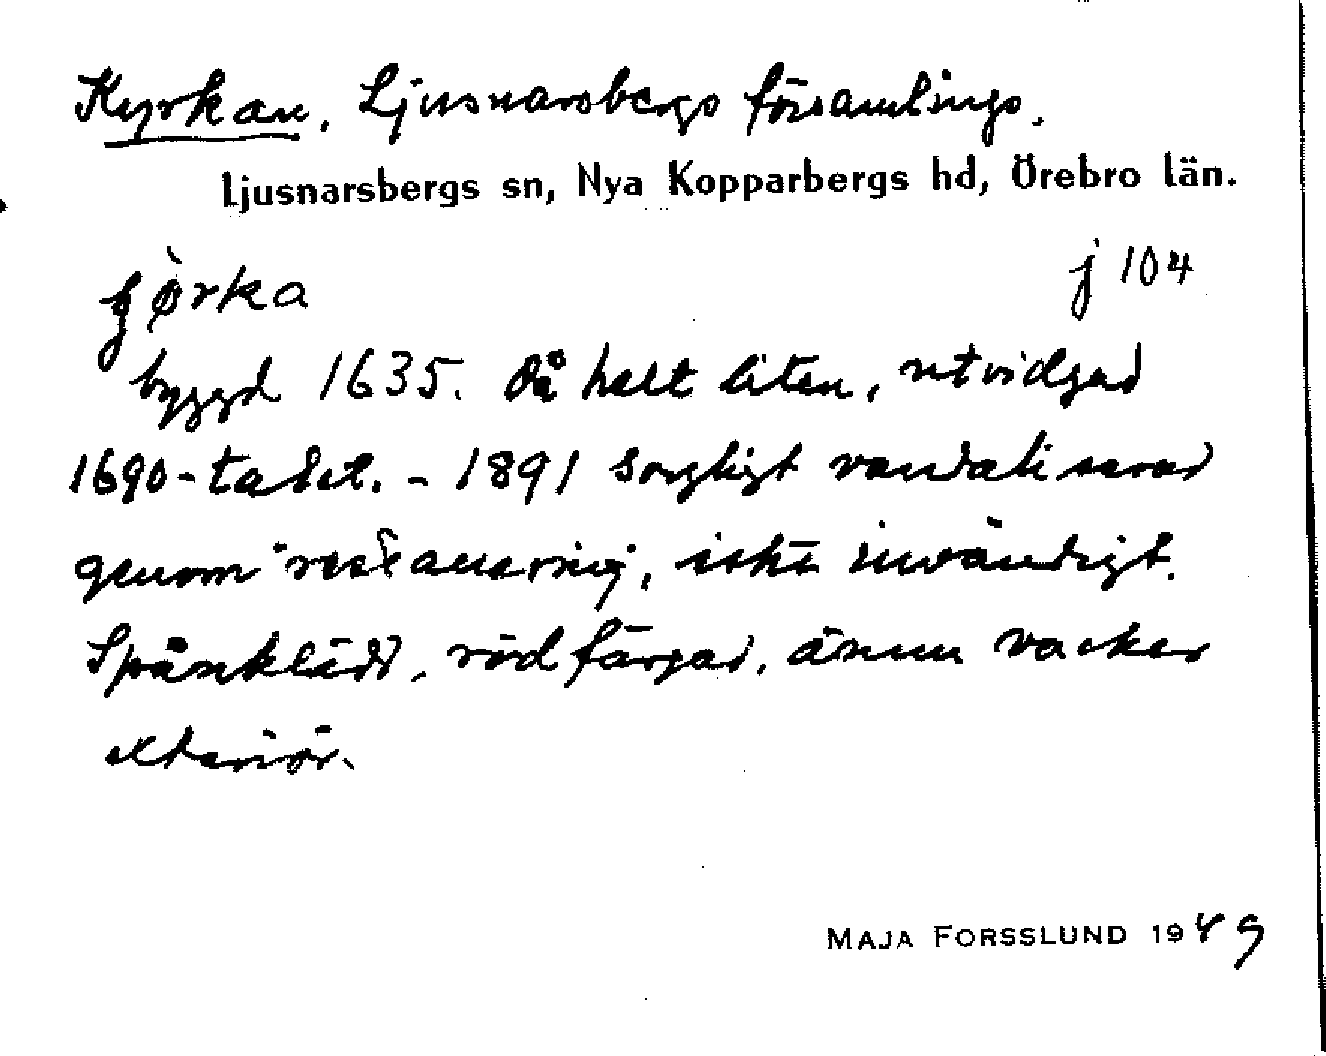 Kyrkan, Ljusnarsbergs församlings.
Ljusnarsbergs sn, Nya Kopparbergs hd, Örebro län.
j 104
byggd 1635. Då helt liten, utvidgad
1690-talet. - 1891 sorgligt vandaliserad
genom "restaurering", icke invändigt.
Spånklädd, rödfärgad, ännu vacker
exteriör.
MAJA FORSSLUND 1949